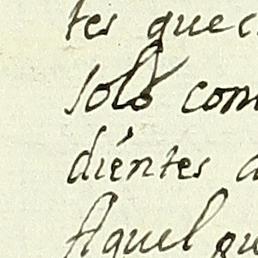 tes que
solo com
diéntes
Aquel qu